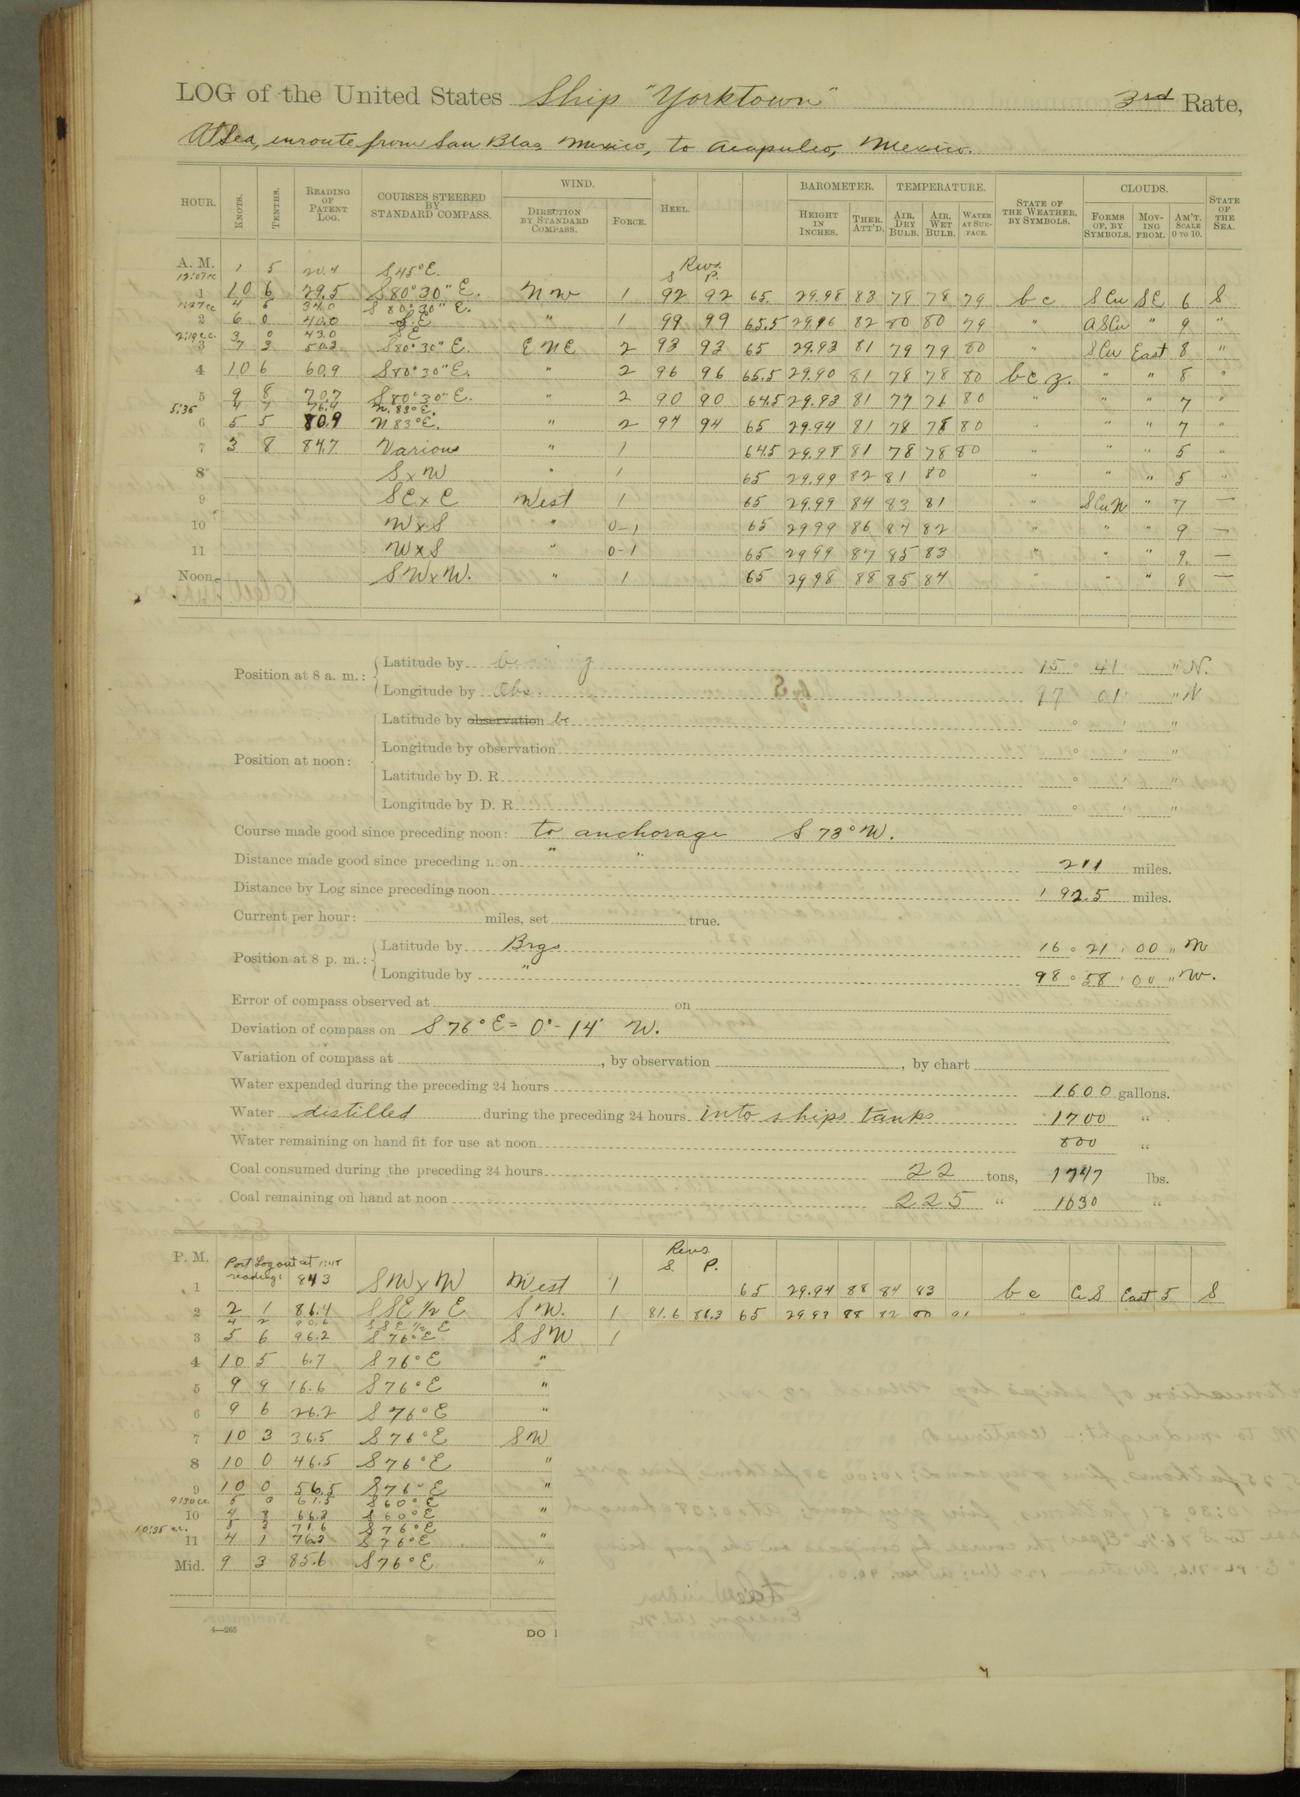 LOG of the United States Ship "Yorktown" 3rd Rate,
At Sea, enroute from San Blas Mexico, to Acapulco, Mexico.
HOUR. KNOTS. TENTHS. READING OF PATENT LOG. COURSES STEERED BY STANDARD COMPASS. WIND. DIRECTION BY STANDARD COMPASS. FORCE. HEEL. BAROMETER. HEIGHT IN INCHES. THER. ATT'D. TEMPERATURE. AIR, DRY BULB. AIR, WET BULB. WATER AT SURFACE. STATE OF THE WEATHER, BY SYMBOLS. CLOUDS. FORMS OF, BY SYMBOLS. MOVING FROM. AM'T. SCALE 0 TO 10. STATE OF THE SEA.
A. M. 1 5 S 45° E. Revs. S P.
1 10 6 29.5 S 80° 30" E. NW 1 92 92 65. 29.98 83 78 78 79 b c S Cu SE 6 S
4 5 34.0 S 80° 30" E.
2 6 0 40.0 S.E " 1 99 99 65.5 29.96 82 80 80 79 " A S Cu " 9 "
3 0 43.0 S E
3 7 3 50.3 S 80° 30" E. E N E 2 93 93 65 29.93 81 79 79 80 " S Cu East 8 "
4 10 6 60.9 S 80° 30" E. " 2 96 96 65.5 29.90 81 78 78 80 b c z. " " 8 "
5 9 8 70.7 S 80° 30" E. " 2 90 90 64.5 29.93 81 77 76 80 " " " 7 "
5:35 4 7 N. 83° E.
6 5 5 80.9 N 83° E. " 2 94 94 65 29.94 81 78 78 80 " " " 7 "
7 3 8 84.7 Various " 1 64.5 29.98 81 78 78 80 " " " 5 "
8 S x W " 1 65 29.99 82 81 80 " " 5 "
9 S E x E West 1 65 29.99 84 83 81 " S Cu N " 7 —
10 W x S " 0-1 65 29.99 86 84 82 " " " 9 —
11 W x S " 0-1 65 29.99 87 85 83 " " " 9. —
Noon. S W x W. " 1 65 29.98 88 85 84 " " " 8 —
Position at 8 a. m.: Latitude by 15° 41' " N.
Longitude by Obs. 97 01' "
Position at noon: Latitude by observation ° ' "
Longitude by observation ° ' "
Latitude by D. R. ° ' "
Longitude by D. R. ° ' "
Course made good since preceding noon: to anchorage S 73° W.
Distance made good since preceding noon " " 211 miles.
Distance by Log since preceding noon 192.5 miles.
Current per hour: miles, set true.
Position at 8 p. m.: Latitude by Brgs 16° 21' 00" N
Longitude by " 98° 58' 00" W.
Error of compass observed at on
Deviation of compass on S 76° E = 0° - 14' W.
Variation of compass at , by observation , by chart
Water expended during the preceding 24 hours 1600 gallons.
Water distilled during the preceding 24 hours into ships tanks 1700 "
Water remaining on hand fit for use at noon 800 "
Coal consumed during the preceding 24 hours 22 tons, 1747 lbs.
Coal remaining on hand at noon 225 " 1630 "
P. M. Port Log out at 1:45 reading: 843 Revs S. P.
1 S W x W West 1 65 29.94 88 84 83 b c C. S East 5 S
2 2 1 86.4 S S E 1/2 E S W. 1 81.6 86.3 65 29.93 88 82
4 2 90.6 S S E 1/2 E
3 5 6 96.2 S 76° E S S W 1
4 10 5 6.7 S 76° E "
5 9 9 16.6 S 76° E "
6 9 6 26.2 S 76° E "
7 10 3 36.5 S 76° E S W
8 10 0 46.5 S 76° E "
9 10 0 56.5 S 76° E "
5 0 61.5 S 60° E
10 4 8 66.3 S 60° E "
5 3 71.6 S 76° E
11 4 1 S 76° E "
Mid. 9 3 85.6 S 76° E "
4—265
DO